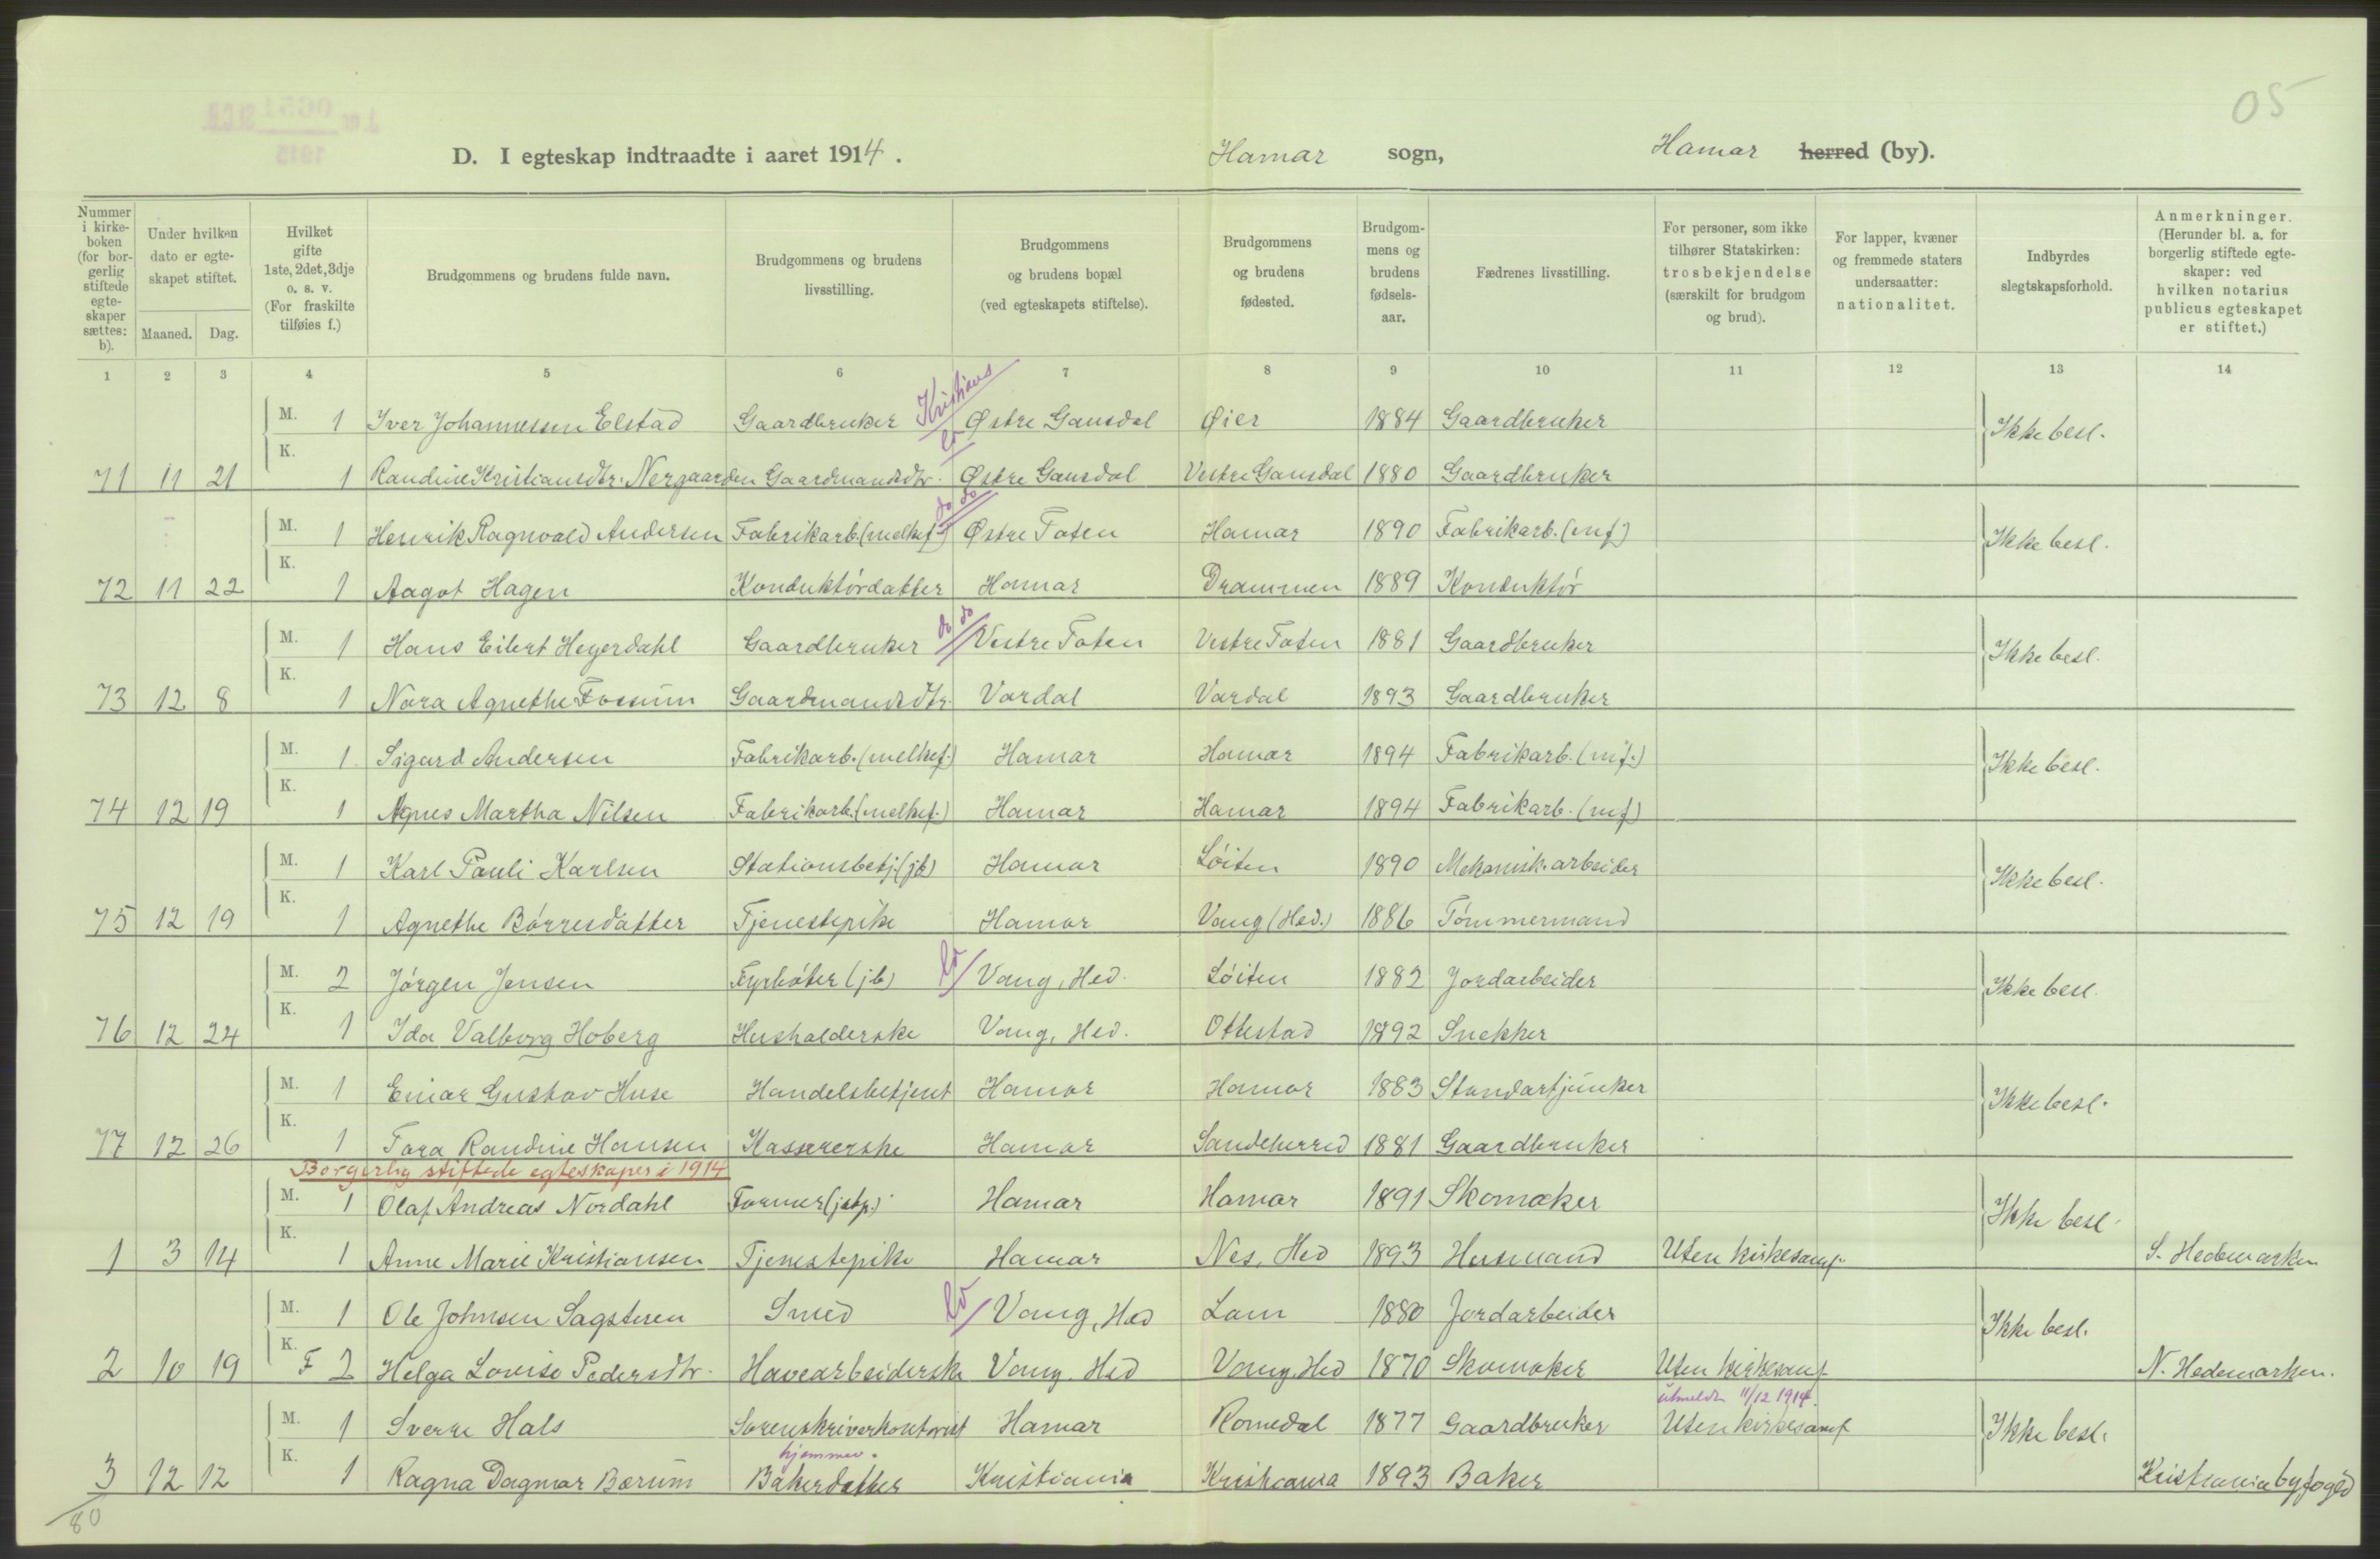 05
D. I egteskap indtraadte i aaret 1914. Hamar sogn, Hamar herred (by).
Nummer i kirkeboken (for borgerlig stiftede egteskaper sættes: b).
Under hvilken dato er egteskapet stiftet.
Maaned. Dag.
Hvilket gifte 1ste, 2det, 3dje o. s. v. (For fraskilte tilføies f.)
Brudgommens og brudens fulde navn.
Brudgommens og brudens livsstilling.
Brudgommens og brudens bopæl (ved egteskapets stiftelse).
Brudgommens og brudens fødested.
Brudgommens og brudens fødselsaar.
Fædrenes livsstilling.
For personer, som ikke tilhører Statskirken: trosbekjendelse (særskilt for brudgom og brud).
For lapper, kvæner og fremmede staters undersaatter: nationalitet.
Indbyrdes slegtskapsforhold.
Anmerkninger. (Herunder bl. a. for borgerlig stiftede egteskaper: ved hvilken notarius publicus egteskapet er stiftet.)
1 2 3 4 5 6 7 8 9 10 11 12 13 14
M. 1 Iver Johannessen Elstad Gaardbruker Kristians Østre Gausdal Øier 1884 Gaardbruker Ikke besl.
71 11 21 K. 1 Randine Kristiansdtr. Nergaarden Gaardmandsdtr. Østre Gausdal Vestre Gausdal 1880 Gaardbruker
M. 1 Henrik Ragnvald Andersen Fabrikarb. (melkef.) do do Østre Toten Hamar 1890 Fabrikarb. (mf) Ikke besl.
72 11 22 K. 1 Aagot Hagen Konduktørdatter Hamar Drammen 1889 Konduktør
M. 1 Hans Eilert Hegerdahl Gaardbruker do do Vestre Toten Vestre Toten 1881 Gaardbruker Ikke besl.
73 12 8 K. 1 Nora Agnethe Fossum Gaardmandsdtr. Vardal Vardal 1893 Gaardbruker
M. 1 Sigurd Andersen Fabrikarb. (melkef.) Hamar Hamar 1894 Fabrikarb. (mf.) Ikke besl.
74 12 19 K. 1 Agnes Martha Nilsen Fabrikarb. (melkef.) Hamar Hamar 1894 Fabrikarb. (mf)
M. 1 Karl Pauli Karlsen Stationsbetj. (jb) Hamar Løiten 1890 Mekanisk. arbeider Ikke besl.
75 12 19 K. 1 Agnethe Børresdatter Tjenestepike Hamar Vang (Hed.) 1886 Tømmermand
M. 2 Jørgen Jensen Fyrbøter (jb) Vang, Hed. Løiten 1882 Jordarbeider Ikke besl.
76 12 24 K. 1 Ida Valborg Hoberg Husholderske Vang, Hed. Ottestad 1892 Snekker
M. 1 Einar Gustav Huse Handelsbetjent Hamar Hamar 1883 Standartjunker Ikke besl.
77 12 26 K. 1 Tora Randine Hansen Kassererske Hamar Sandeherred 1881 Gaardbruker
Borgerlig stiftede egteskaper i 1914
M. 1 Olaf Andreas Nordahl Former (jstp.) Hamar Hamar 1891 Skomaker Ikke besl.
1 3 14 K. 1 Anne Marie Kristiansen Tjenestepike Hamar Nes, Hed 1893 Husmand Uten kirkesamf. S. Hedemarken
M. 1 Ole Johnsen Sagstuen Smed Vang, Hed Lom 1880 Jordarbeider Ikke besl.
2 10 19 K. F 2 Helga Lovise Pedersdtr. Havearbeiderske Vang. Hed Vang. Hed 1870 Skomaker Uten kirkesamf. N. Hedemarken.
utmeldt 11/12 1914.
M. 1 Sverre Hals Sorenskriverkontorist Hamar Romedal 1877 Gaardbruker Uten kirkesamf Ikke besl.
hjemmev.
3 12 12 K. 1 Ragna Dagmar Bærum Bakerdatter Kristiania Kristiania 1893 Baker Kristiania byfoged
80